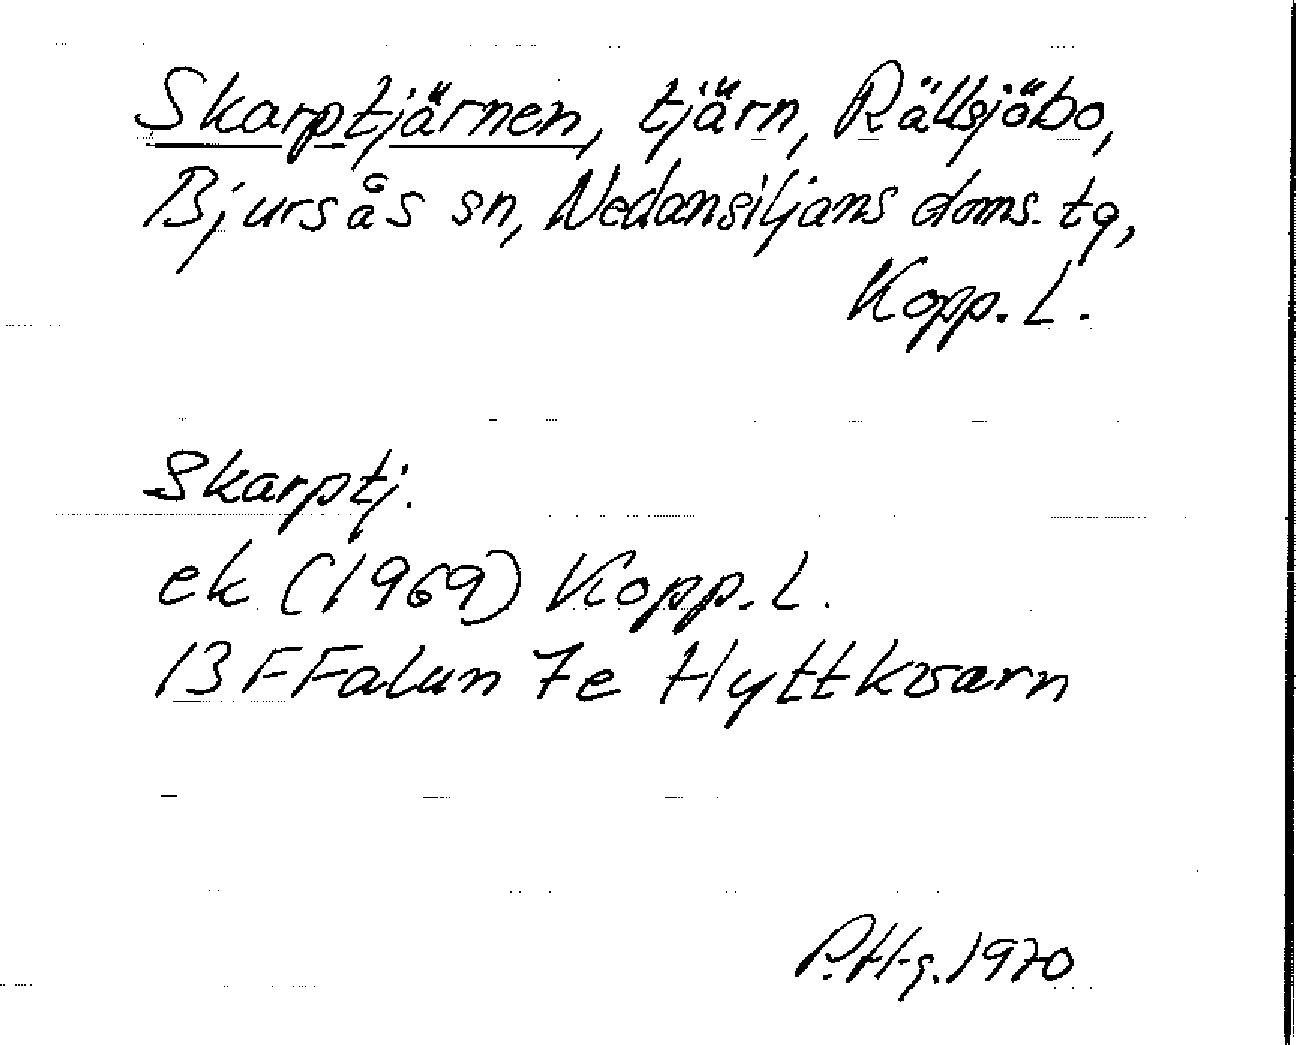 Skarptjärnen, tjärn, Rällsjöbo,
Bjursås sn, Nedansiljans doms. tg,
Kopp. L.
Skarptj.
ek (1969) Kopp. L.
13 F Falun 7e Hyttkvarn
P. Hg. 1970